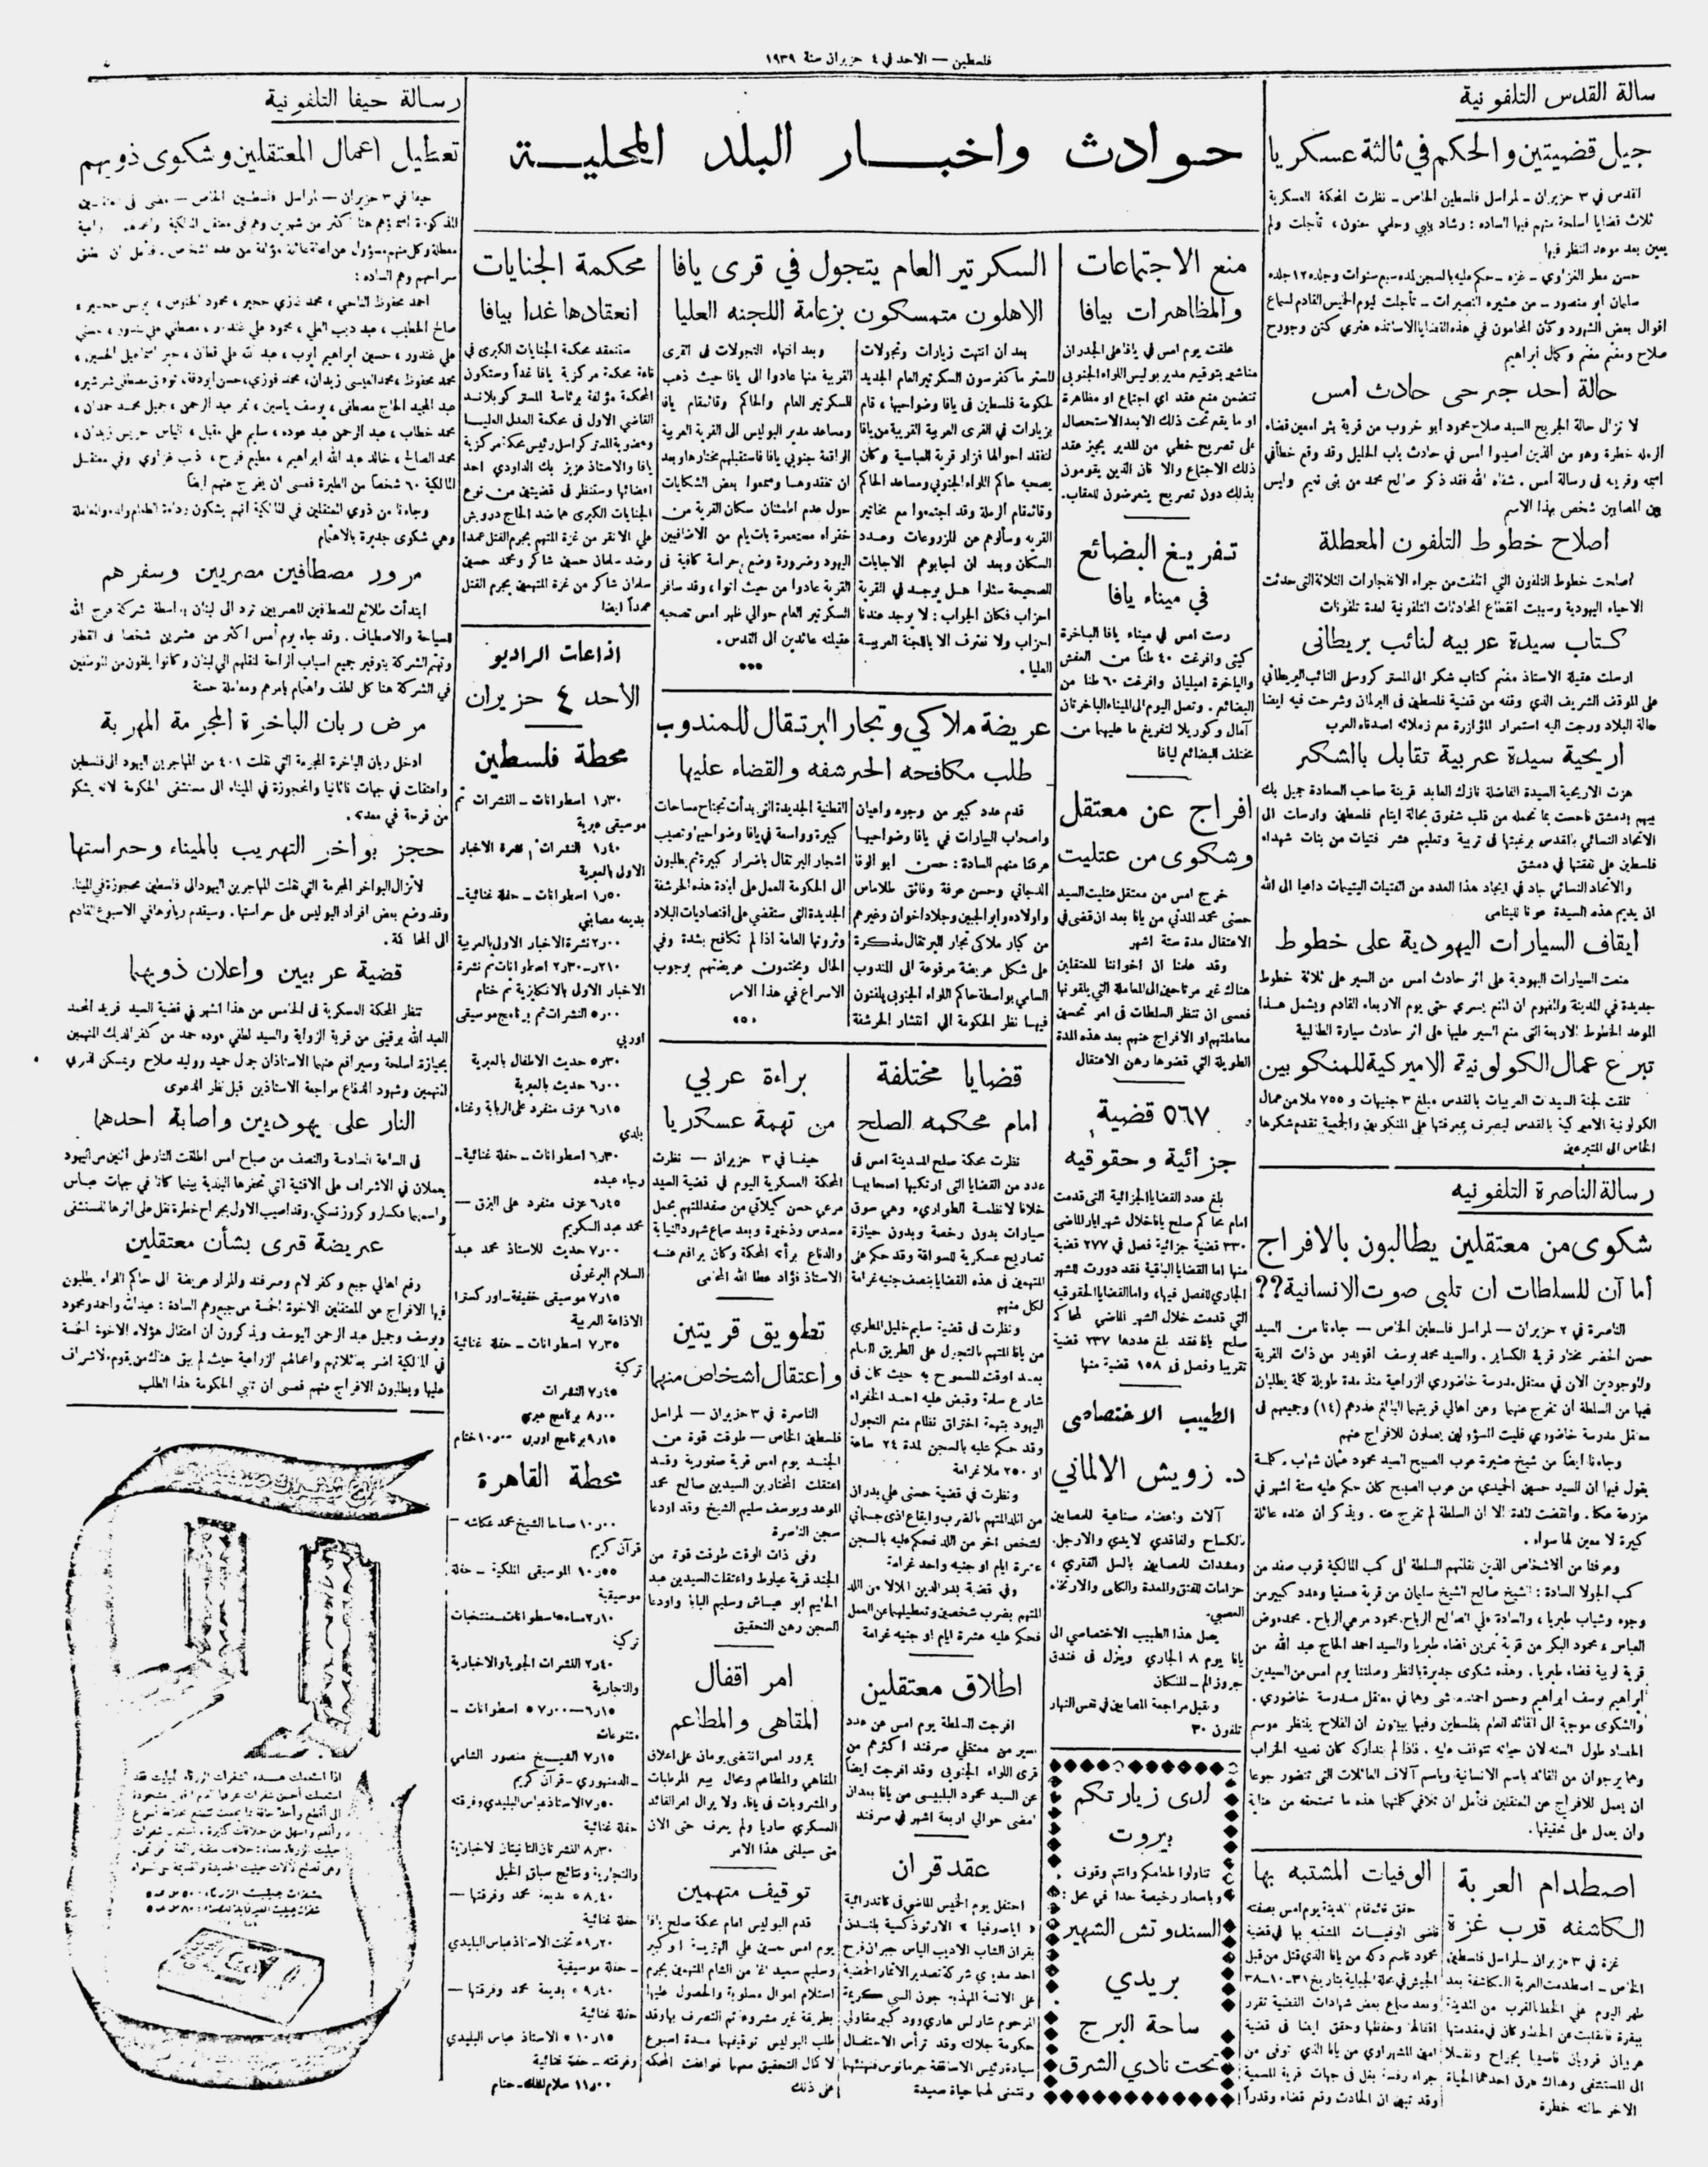 فلسطين — الاحد في ٤ حزيران سنة ١٩٣٩
حوادث واخبار البلد المحلية
سالة القدس التلفونية
جيل قضيتين والحكم في ثالثة عسكريا
القدس في ٣ حزيران – لمراسل فلسطين الخاص – نظرت المحكمة العسكرية
ثلاث قضايا اسلحة متهم فيها السادة : رشاد بيبي وحلمي معتوق ، تأجلت ولم
يعين بعد موعد النظر فيها
حسن مطر الغزاوي – غزه – حكم عليه بالسجن لمدة سبع سنوات وجلده ١٢ جلده
سلمان ابو منصور – من عشيره النصيرات – تأجلت ليوم الخميس القادم لسماع
اقوال بعض الشهود وكان المحامون في هذه القضايا الاساتذه هنري كتن وجورج
صلاح ومغنم مغنم وكمال ابراهيم
حالة احد جرحى حادث امس
لا تزال حالة الجريح السيد صلاح محمود ابو خروب من قرية بئر امعين قضاء
الرمله خطرة وهو من الذين أصيبوا امس في حادث باب الخليل وقد وقع خطأ في
اسمه وقريته في رسالة أمس . شفاه الله فقد ذكر صالح محمد من بني نعيم وليس
بين المصابين شخص بهذا الاسم
اصلاح خطوط التلفون المعطلة
أصلحت خطوط التلفون التي اتلفت من جراء الانفجارات الثلاثة التي حدثت
الاحياء اليهودية وسببت انقطاع المحادثات التلفونية لعدة تلفونات
كتاب سيدة عربيه لنائب بريطاني
ارسلت عقيلة الاستاذ مغنم كتاب شكر الى المستر كروسلي النائب البريطاني
على الموقف الشريف الذي وقفه من قضية فلسطين في البرلمان وشرحت فيه ايضا
حالة البلاد ورجت اليه استمرار المؤازرة مع زملائه اصدقاء العرب
اريحية سيدة عربية تقابل بالشكر
هزت الاريحية السيدة الفاضلة نازك العابد قرينة صاحب السعادة جميل بك
بيهم بدمشق فاحست بما تحمله من قلب شفوق بحالة ايتام فلسطين وارسلت الى
الاتحاد النسائي بالقدس برغبتها في تربية وتعليم عشر فتيات من بنات شهداء
فلسطين على نفقتها في دمشق
والاتحاد النسائي جاد في ايجاد هذا العدد من الفتيات اليتيمات داعيا الى الله
ان يديم هذه السيدة عونا لليتامى
ايقاف السيارات اليهودية على خطوط
منعت السيارات اليهودية على اثر حادث امس من السير على ثلاثة خطوط
جديدة في المدينة والمفهوم ان المنع يسري حتى يوم الاربعاء القادم ويشمل هذا
الموعد الخطوط الاربعة التي منع السير عليها على اثر حادث سيارة الطالبية
تبرع عمال الكولونية الاميركية للمنكوبين
تلقت لجنة السيدات العربيات بالقدس مبلغ ٣ جنيهات و ٧٥٥ ملا من عمال
الكولونية الاميركية بالقدس ليصرف بمعرفتها على المنكوبين والجمعية تقدم شكرها
الخاص الى المتبرعين
رسالة الناصرة التلفونيه
شكوى من معتقلين يطالبون بالافراج
أما آن للسلطات ان تلبي صوت الانسانية؟؟
الناصرة في ٢ حزيران – لمراسل فلسطين الخاص – جاءنا من السيد
حسن الخضر مختار قرية الكساير . والسيد محمد يوسف افويدر من ذات القرية
والموجودين الان في معتقل مدرسة خاضوري الزراعية منذ مدة طويلة كلمة يطلبان
فيها من السلطة ان تفرج عنهما وعن اهالي قريتهما البالغ عددهم (١٤) وجميعهم في
معتقل مدرسة خاضوري فليت المسؤولين يعملون للافراج عنهم
وجاءنا ايضا من شيخ عشيرة عرب الصبيح السيد محمود عثمان شهاب . كلمة
يقول فيها ان السيد حسين الحميدي من عرب الصبيح كان حكم عليه ستة اشهر في
مزرعة عكا . وانقضت المدة الا ان السلطة لم تفرج عنه . ويذكر ان عنده عائلة
كبيرة لا معين لها سواه .
وعرفنا من الاشخاص الذين نقلتهم السلطة الى كمب المالكية قرب صفد من
كمب الجولا السادة : الشيخ صالح الشيخ سليمان من قرية عسفيا وعدد كبير من
وجوه وشباب طبريا ، والسادة علي الصالح الرباح. محمود مرعي الرباح. محمد عوض
العباس ، محمود البكر من قرية نمرين قضاء طبريا والسيد احمد الحاج عبد الله من
قرية لوبية قضاء طبريا . وهذه شكوى جديرة بالنظر وصلتنا يوم امس من السيدين
ابراهيم يوسف ابراهيم وحسن احمد وهما في معتقل مدرسة خاضوري .
والشكوى موجهة الى القائد العام بفلسطين وفيها يبينون ان الفلاح ينتظر موسم
الحصاد طول السنه لان حياته تتوقف عليه . فاذا لم يتداركه كان نصيبه الخراب
وهما يرجوان من القائد باسم الانسانية وباسم آلاف العائلات التي تتضور جوعا
ان يعمل للافراج عن المعتقلين فنأمل ان تلاقي كلمتهما هذه ما تستحقه من عناية
وان يعمل على تحقيقها.
اصطدام العربة
الكاشفه قرب غزة
غزة في ٣ حزيران – لمراسل فلسطين
الخاص – اصطدمت العربة الكاشفة بعد
ظهر اليوم على الخط القرب من المدينة
الى المستشفى وهناك فارق احدهما الحياة
الاخر حالته خطرة
الوفيات المشتبه بها
حقق قائمقام المدينة يوم امس بصفته
قاضي الوفيات المشتبه بها في قضية
محمود قاسم دكه من يافا الذي قتل من قبل
الجيش في محلة الجبالية بتاريخ ٣١–١٠–٣٨
وبعد سماع بعض شهادات القضية تقرر
اقفالها وحفظها وحقق ايضا في قضية
امين الشهراوي من يافا الذي توفى من
جراء رفسة بغل في جهات قرية المسمية
وقد تبين ان الحادث وقع قضاء وقدراً
منع الاجتماعات
والمظاهرات بيافا
علقت يوم امس في يافا على الجدران
مناشير بتوقيع مدير بوليس اللواء الجنوبي
تتضمن منع عقد اي اجتماع او مظاهرة
او ما يقع تحت ذلك الا بعد الاستحصال
على تصريح خطي من المدير يجيز عقد
ذلك الاجتماع والا فان الذين يقومون
بذلك دون تصريح يتعرضون للعقاب.
تفريغ البضائع
في ميناء يافا
رست امس في ميناء يافا الباخرة
كيتي وافرغت ٤٠ طناً من العفش
والباخرة اميليان وافرغت ٦٠ طنا من
البضائع . وتصل اليوم الى الميناء الباخرتان
آمال وكوريلا لتفريغ ما عليهما من
مختلف البضائع ليافا
افراج عن معتقل
وشكوى من عتليت
خرج امس من معتقل عتليت السيد
حسني محمد المدني من يافا بعد ان قضى في
الاعتقال مدة ستة اشهر
وقد علمنا ان اخواننا المعتقلين
هناك غير مرتاحين الى المعاملة التي يلقونها
فعسى ان تنظر السلطات في امر تحسين
معاملتهم او الافراج عنهم بعد هذه المدة
الطويلة التي قضوها رهن الاعتقال
٥٦٧ قضية
جزائية وحقوقيه
بلغ عدد القضايا الجزائية التي قدمت
امام محاكم صلح يافا خلال شهر ايار الماضي
٣٣٠ قضية جزائية فصل في ٢٧٧ قضية
منها اما القضايا الباقية فقد دورت للشهر
الجاري للفصل فيها، واما القضايا الحقوقيه
التي قدمت خلال الشهر الماضي لمحاكم
صلح يافا فقد بلغ عددها ٢٣٧ قضية
تقريبا وفصل في ١٥٨ قضية منها
الطبيب الاختصاصي
د. زويش الالماني
آلات واعضاء صناعية للمصابين
بالكساح ولفاقدي الايدي والارجل.
ومشدات للمصابين بالسل الفقري ،
حزامات للفتق والمعدة والكلى والارتخاء
العصبي.
يصل هذا الطبيب الاختصاصي الى
يافا يوم ٨ الجاري وينزل في فندق
جروزالم –
وتقبل مراجعة المصابين في نفس النهار
تلفون ٣٠
لدى زيارتكم
بيروت
تناولوا طعامكم وانتم وقوف
وباسعار رخيصة جدا في محل :
السندوتش الشهير
بريدي
ساحة البرج
تحت نادي الشرق
السكرتير العام يتجول في قرى يافا
الاهلون متمسكون بزعامة اللجنه العليا
بعد ان انتهت زيارات وتجولات
المستر ماكفرسون السكرتير العام الجديد
لحكومة فلسطين في يافا وضواحيها ، قام
بزيارات في القرى العربية القريبة من يافا
لتفقد احوالها فزار قرية العباسية وكان
يصحبه حاكم اللواء الجنوبي ومساعد الحاكم
وقائمقام الرملة وقد اجتمعوا مع مخاتير
القريه وسألوهم عن المزروعات وعدد
السكان وبعد ان اجابوهم الاجابات
الصحيحة سئلوا هل يوجد في القرية
احزاب فكان الجواب : لا يوجد عندنا
احزاب ولا نعترف الا باللجنة العربية
العليا .
وبعد انتهاء التجولات في القرى
القريبة منها عادوا الى يافا حيث ذهب
السكرتير العام والحاكم وقائمقام يافا
ومساعد مدير البوليس الى القرية العربية
الواقعة جنوبي يافا فاستقبلهم مختارها وبعد
ان تفقدوها وسمعوا بعض الشكايات
حول عدم اطمئنان سكان القرية من
خفراء مستعمرة بات يام من الاضافيين
اليهود وضرورة وضع حراسة كافية في
القرية عادوا من حيث اتوا ، وقد سافر
السكرتير العام حوالي ظهر امس تصحبه
عقيلته عائدين الى القدس .
عريضة ملاكي وتجار البرتقال للمندوب
طلب مكافحه الحرشفه والقضاء عليها
قدم عدد كبير من وجوه واعيان
واصحاب البيارات في يافا وضواحيها
عرفنا منهم السادة : حسن ابو الوفا
الدجاني وحسن عرفة وفائق طلاماس
واولاده وابو الجبين وجلاد اخوان وغيرهم
من كبار ملاكي تجار البرتقال مذكرة
على شكل عريضة مرفوعة الى المندوب
السامي بواسطة حاكم اللواء الجنوبي يلفتون
فيها نظر الحكومة الى انتشار الحرشفة
القطنية الجديدة التي بدأت تجتاح مساحات
كبيرة وواسعة في يافا وضواحيها وتصيب
اشجار البرتقال باضرار كبيرة ثم يطلبون
الى الحكومة العمل على ابادة هذه الحرشفة
الجديدة التي ستقضي على اقتصاديات البلاد
وثروتها العامة اذا لم تكافح بشدة وفي
الحال ويختتمون عريضتهم بوجوب
الاسراع في هذا الامر
قضايا مختلفة
امام محكمه الصلح
نظرت محكمة صلح المدينة امس في
عدد من القضايا التي ارتكبها اصحابها
خلافا لانظمة الطواريء وهي سوق
سيارات بدون رخصة وبدون حيازة
تصاريح عسكرية للسواقة وقد حكم على
المتهمين في هذه القضايا بنصف جنيه غرامة
لكل منهم
ونظرت في قضية: سليم خليل المطري
من يافا المتهم بالتجول على الطريق العام
بعد الوقت المسموح به حيث كان في
شارع سلمة وقبض عليه احد الخفراء
اليهود بتهمة اختراق نظام منع التجول
وقد حكم عليه بالسجن لمدة ٢٤ ساعة
او ٢٥٠ ملا غرامة
ونظرت في قضية حسني علي بدران
من اللد المتهم بالضرب وايقاع اذى جسماني
لشخص اخر من اللد فحكم عليه بالسجن
عشرة ايام او جنيه واحد غرامة
وفي قضية بدر الدين الملالا من اللد
المتهم بضرب شخصين وتعطيلهما عن العمل
فحكم عليه عشرة ايام او جنيه غرامة
اطلاق معتقلين
افرجت السلطة يوم امس عن عدد
يسير من معتقلي صرفند اكثرهم من
قرى اللواء الجنوبي وقد افرجت ايضا
عن السيد محمود البلبيسي من يافا بعد ان
امضى حوالي اربعة اشهر في صرفند
عقد قران
احتفل يوم الخميس الماضي في كاتدرائية
« اياصوفيا » الارثوذكسية بلندن
بقران الشاب الاديب الياس جبران فرح
احد مديري شركة تصدير الاثمار الحمضية
على الانسة المهذبه جون السي كريمة
المرحوم شارلس هاري وود كبير مقاولي
حكومة جلالته وقد ترأس الاحتفال
سيادة رئيس الاساقفة جرمانوس فنهنئهما
ونتمنى لهما حياة سعيدة
براءة عربي
من تهمة عسكريا
حيفا في ٣ حزيران – نظرت
المحكمة العسكرية اليوم في قضية السيد
مرعي حسن كيلاني من صفد المتهم بحمل
مسدس وذخيرة وبعد سماع شهود النيابة
والدفاع برأته المحكمة وكان يرافع عنه
الاستاذ فؤاد عطا الله المحامي
تطويق قريتين
واعتقال أشخاص منهما
الناصرة في ٣ حزيران – لمراسل
فلسطين الخاص – طوقت قوة من
الجند يوم امس قرية صفورية وقد
اعتقلت المختارين السيدين صالح محمد
الموعد ويوسف سليم الشيخ وقد اودعا
سجن الناصرة
وفي ذات الوقت طوقت قوة من
الجند قرية عيلوط واعتقلت السيدين عبد
الحليم ابو عياش وسليم البابا واودعا
السجن رهن التحقيق
امر اقفال
المقاهي والمطاعم
بمرور امس انقضى يومان على اغلاق
المقاهي والمطاعم ومحال بيع المرطبات
والمشروبات في يافا. ولا يزال امر القائد
العسكري ساريا ولم يعرف حتى الان
متى سيلغى هذا الامر
توقيف متهمين
قدم البوليس امام محكمة صلح يافا
يوم امس حسين علي
وسليم سعيد اغا من الشام المتهمين بجرم
استلام اموال مسلوبة والحصول عليها
بطريقة غير مشروعه ثم التصرف بها وقد
طلب البوليس توقيفهما مدة اسبوع
لاكمال التحقيق معهما فوافقت المحكمه
على ذلك
محكمة الجنايات
انعقادها غدا بيافا
ستنعقد محكمة الجنايات الكبرى في
قاعة محكمة مركزية يافا غداً وستكون
المحكمة مؤلفة برئاسة المستر كوبلاند
القاضي الاول في محكمة العدل العليا
وعضوية المستر كراسل رئيس محكمة مركزية
يافا والاستاذ عزيز بك الداودي احد
اعضائها وستنظر في قضيتين من نوع
الجنايات الكبرى هما ضد الحاج درويش
علي الانقر من غزة المتهم بجرم القتل عمدا
وضد سلمان حسين شاكر ومحمد حسين
سلمان شاكر من غزة المتهمين بجرم القتل
عمداً ايضا
اذاعات الراديو
الأحد ٤ حزيران
محطة فلسطين
١٫٣٠ اسطوانات – النشرات ثم
موسيقى عبرية
١٫٤٠ النشرات، نشرة الاخبار
الاولى بالعبرية
١٫٥٠ اسطوانات – حفلة غنائية –
بديعه مصابني
٢٫٠٠ نشرة الاخبار الاولى بالعربية
٢٫١٠–٢٫٣٠ اسطوانات ثم نشرة
الاخبار الاولى بالانكليزية ثم ختام
٥٫٠٠ النشرات ثم برنامج موسيقى
اوربي
٥٫٣٠ حديث الاطفال بالعبرية
٦٫٠٠ حديث بالعبرية
٦٫١٥ عزف منفرد على الربابة وغناء
بلدي
٦٫٣٠ اسطوانات – حفلة غنائية –
رجاء عبده
٦٫٤٥ عزف منفرد على البزق –
محمد عبد الكريم
٧٫٠٠ حديث للاستاذ محمد عبد
السلام البرغوثي
٧٫١٥ موسيقى خفيفة – اوركسترا
الاذاعة العربية
٧٫٣٥ اسطوانات – حفلة غنائية
تركية
٧٫٤٥ النشرات
٨٫٠٠ برنامج عبري
٩٫١٥ برنامج اوربي ١٠٫٠٠ ختام
محطة القاهرة
١٠٫٠٠ صباحا الشيخ محمد عكاشه –
قرآن كريم
١٠٫٥٥ الموسيقى الملكية – حفلة
موسيقية
٢٫١٠ مساء اسطوانات – منتخبات
تركية
٢٫٤٠ النشرات الجوية والاخبارية
والتجارية
٦٫١٥–٧٫٠٠ اسطوانات –
متنوعات
٧٫١٥ الشيخ منصور الشامي
الدمنهوري – قرآن كريم
٧٫٥٠ الاستاذ عباس البليدي وفرقته
حفلة غنائية
٨٫٣٠ النشرتان الثانيتان الاخبارية
والتجارية ونتائج سباق الخيل
٨٫٤٠ بديعة محمد وفرقتها –
حفلة غنائية
٩٫٢٠ تخت الاستاذ عباس البليدي
– حفلة موسيقية
٩٫٤٠ بديعة محمد وفرقتها –
حفلة غنائية
١٠٫١٥ الاستاذ عباس البليدي
وفرقته – حفلة غنائية
١١٫٠٠ سلام الملك – ختام
رسالة حيفا التلفونية
تعطيل اعمال المعتقلين وشكوى ذويهم
حيفا في ٣ حزيران – لمراسل فلسطين الخاص – مضى على
المذكورة اسماؤهم هنا اكثر من شهرين وهم في معتقل المالكية واعمالهم
معطلة وكل منهم مسؤول عن اعالة عائلة مؤلفة من عدة اشخاص . فنأمل ان يطلق
سراحهم وهم السادة :
احمد محفوظ الناجي ، محمد غازي حجير ، محمود الخنوس ، يونس حجير ،
صالح الخطيب ، عبد ديب العلي ، محمود علي غندور ، مصطفى علي غندور ، حسني
علي غندور ، حسين ابراهيم ايوب ، عبد الله علي قطان ، جبر اسماعيل الحسين ،
محمد محفوظ ، محمد العيسى زيدان، محمد فوزي، حسن ابو دقة، توفيق مصطفى شرشير،
عبد المجيد الحاج مصطفى ، يوسف ياسين ، نمر عبد الرحمن ، جميل محمد حمدان ،
محمد خطاب ، عبد الرحمن عبد عوده ، سليم علي مقبل ، الياس جريس زيدان ،
محمد الصالح ، خالد عبد الله ابراهيم ، مطيع فرح ، ذيب غزاوي وفي معتقل
المالكية ٦٠ شخصاً من الطيرة فعسى ان يفرج عنهم ايضاً
وجاءنا من ذوي المعتقلين في المالكية انهم يشكون رداءة الطعام والماء والمعاملة
وهي شكوى جديرة بالاهتمام
مرور مصطافين مصريين وسفرهم
ابتدأت طلائع المصطافين المصريين ترد الى لبنان بواسطة شركة فرج الله
للسياحة والاصطياف . وقد جاء يوم أمس اكثر من عشرين شخصا في القطار
وتهتم الشركة بتوفير جميع اسباب الراحة لنقلهم الى لبنان وكانوا يلقون من الموظفين
في الشركة هنا كل لطف واهتمام بامرهم ومعاملة حسنة
مرض ربان الباخرة المجرمة المهربة
ادخل ربان الباخرة المجرمة التي نقلت ٤٠١ من المهاجرين اليهود الى فلسطين
واعتقلت في جهات ناتانيا والمحجوزة في الميناء الى مستشفى الحكومة لانه يشكو
من قرحة في معدته .
حجز بواخر التهريب بالميناء وحراستها
لا تزال البواخر المجرمة التي نقلت المهاجرين اليهود الى فلسطين محجوزة في الميناء
وقد وضع بعض افراد البوليس على حراستها . وسيقدم ربابنتها في الاسبوع القادم
الى المحاكمة .
قضية عربيين واعلان ذويهما
تنظر المحكمة العسكرية في الخامس من هذا الشهر في قضية السيد فريد المحمد
العبد الله برقيني من قرية الزواية والسيد لطفي عوده حمد من كفر الديك المتهمين
بحيازة اسلحة وسيرافع عنهما الاستاذان جمال حميد ووليد صلاح ويمكن لذوي
المتهمين وشهود الدفاع مراجعة الاستاذين قبل نظر الدعوى
النار على يهوديين واصابة احدهما
في الساعة السادسة والنصف من صباح امس اطلقت النار على اثنين من اليهود
يعملان في الاشراف على الاقنية التي تحفرها البلدية بينما كانا في جهات عباس
واسمهما فكسلر وكروزنسكي. وقد اصيب الاول بجراح خطرة نقل على اثرها للمستشفى
عريضة قرى بشأن معتقلين
رفع اهالي جبع وكفر لام وصرفند والمزار عريضة الى حاكم اللواء يطلبون
فيها الافراج عن المعتقلين الاخوة الخمسة من جبع وهم السادة : عبد الله واحمد ومحمود
ويوسف وجميل عبد الرحمن اليوسف ويذكرون ان اعتقال هؤلاء الاخوة الخمسة
في المالكية اضر بعائلاتهم واعمالهم الزراعية حيث لم يبق هناك من يقوم بالاشراف
عليها ويطلبون الافراج عنهم فعسى ان تلبي الحكومة هذا الطلب
اذا استعملت هذه الشفرات الزرقاء